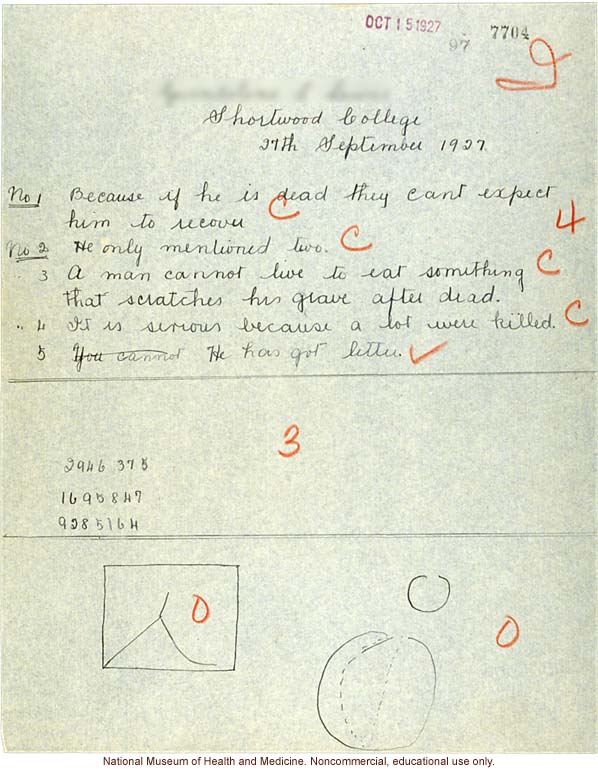 OCT 15 1927
97 7704
Shortwood College
27th September 1927
No 1 Because if he is dead they cant expect
him to recover C
4
No 2 He only mentioned two. C
3 A man cannot live to eat something C
that scratches his grave after dead.
" 4 It is serious because a lot were killed. C
5 You cannot He has got letter. ✓
3
2946 375
1695847
9285164
0
0
National Museum of Health and Medicine. Noncommercial, educational use only.